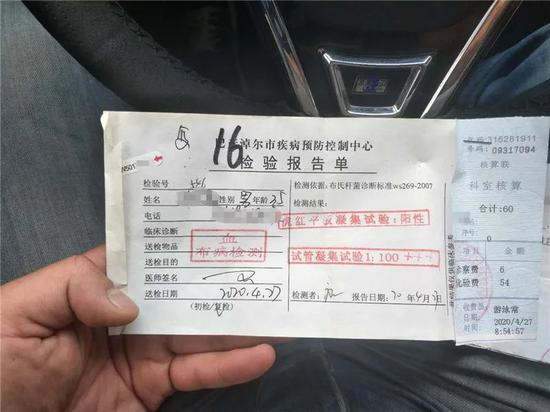 16
巴彦淖尔市疾病预防控制中心
检验报告单
检验号
姓名 性别 男 年龄 35
电话
临床诊断
送检物品 血
布病检测
医师签名
送检日期 2020.4.27
(初检/复检)
检测依据:布氏杆菌诊断标准ws269-2007
检测结果:
虎红平板凝集试验:阳性
试管凝集试验1:100 +++
检测者: 报告日期: 20 年 4 月 日
号码:09317094
核算联
科室核算
合计:60
项目 金额
诊察费 6
化验费 54
收费员 游泳常
日期: 2020/4/27
8:54:57